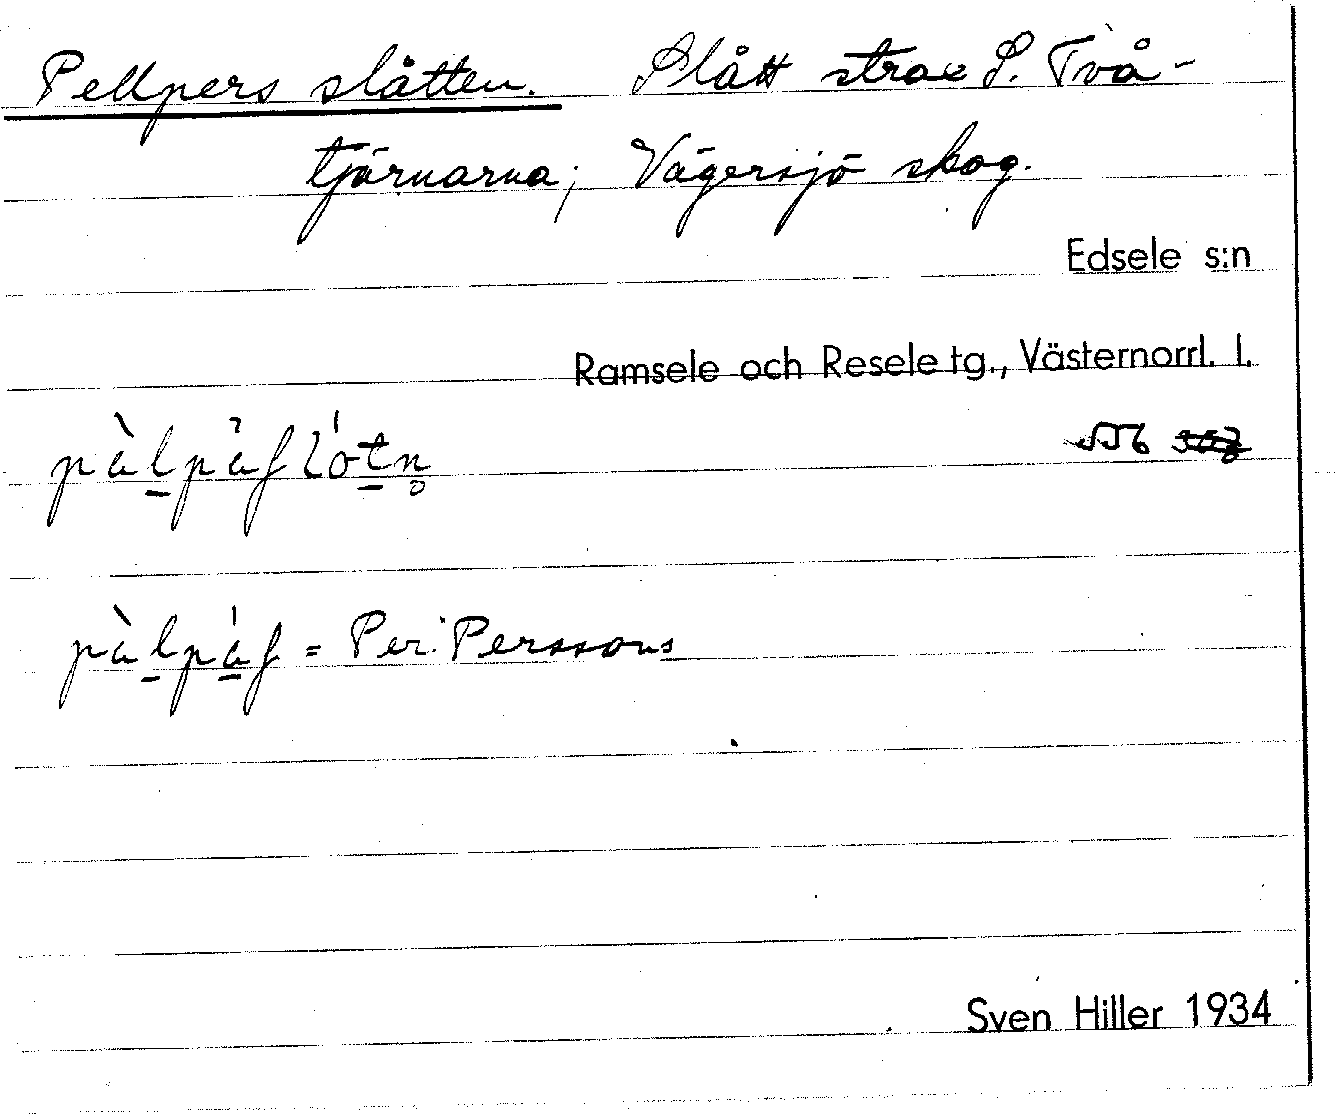 Pellpers slåtten. Slått strax S. Två-
tjärnarna; Vägersjö skog.
Edsele s:n
Ramsele och Resele tg., Västernorrl. l.
556
= Per Perssons
Sven Hiller 1934